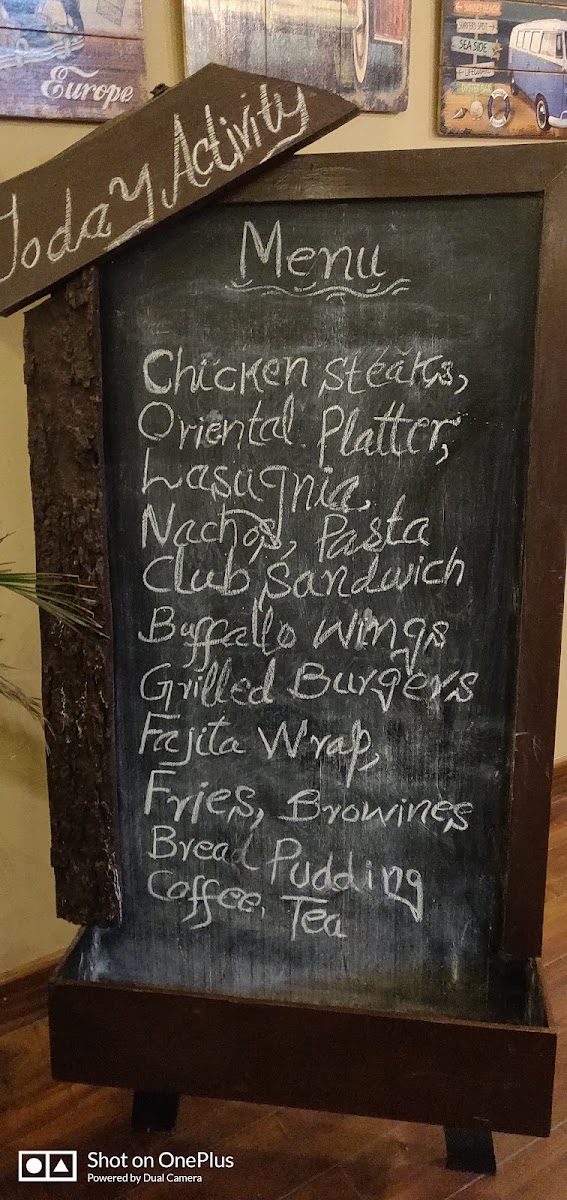 Europe
SURFERS SPOT
SEA SIDE
OYSTER BAR
Today Activity
Menu
Chicken steaks,
Oriental Platter,
Lasugnia,
Nachos, Pasta
Club Sandwich
Buffallo wings
Grilled Burgers
Fajita Wrap,
Fries, Browines
Bread Pudding
Coffee, Tea
Shot on OnePlus
Powered by Dual Camera